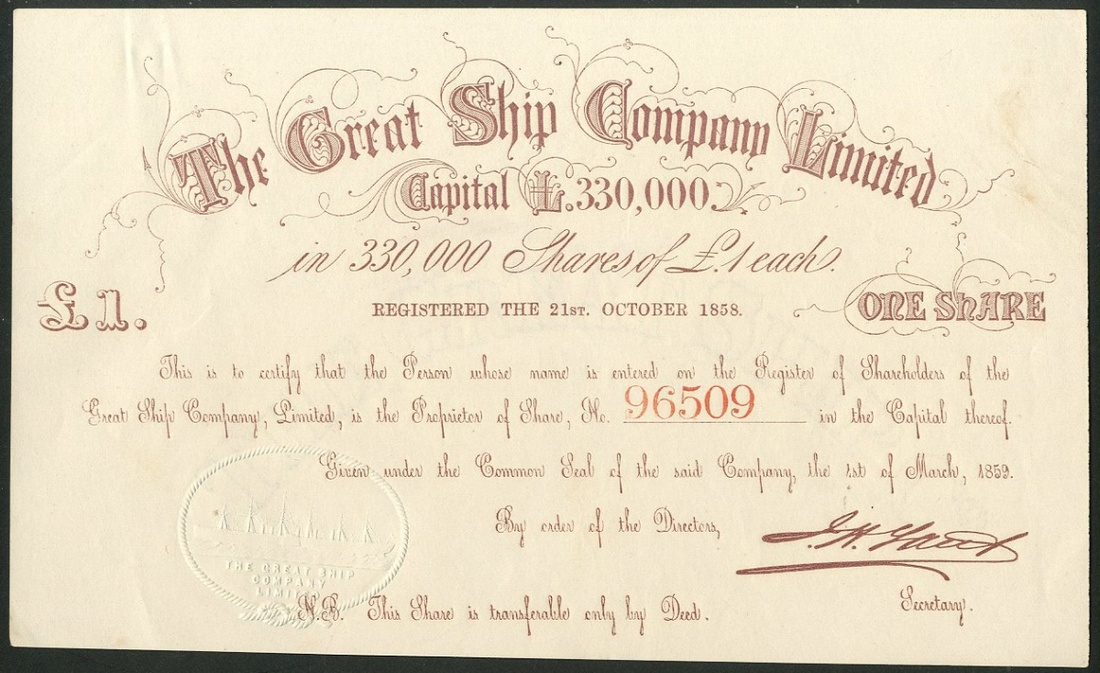 The Great Ship Company Limited
Capital £.330,000.
in 330,000 Shares of £.1 each.
£1.
REGISTERED THE 21ST. OCTOBER 1858.
ONE ShARE
This is to certify that the Person whose name is entered on the Register of Shareholders of the
Great Ship Company, Limited, is the Proprietor of Share, No. 96509 in the Capital thereof.
Given under the Common Seal of the said Company, the 1st of March, 1859.
By order of the Directors,
THE GREAT SHIP
COMPANY
Secretary.
N.B. This Share is transferable only by Deed.